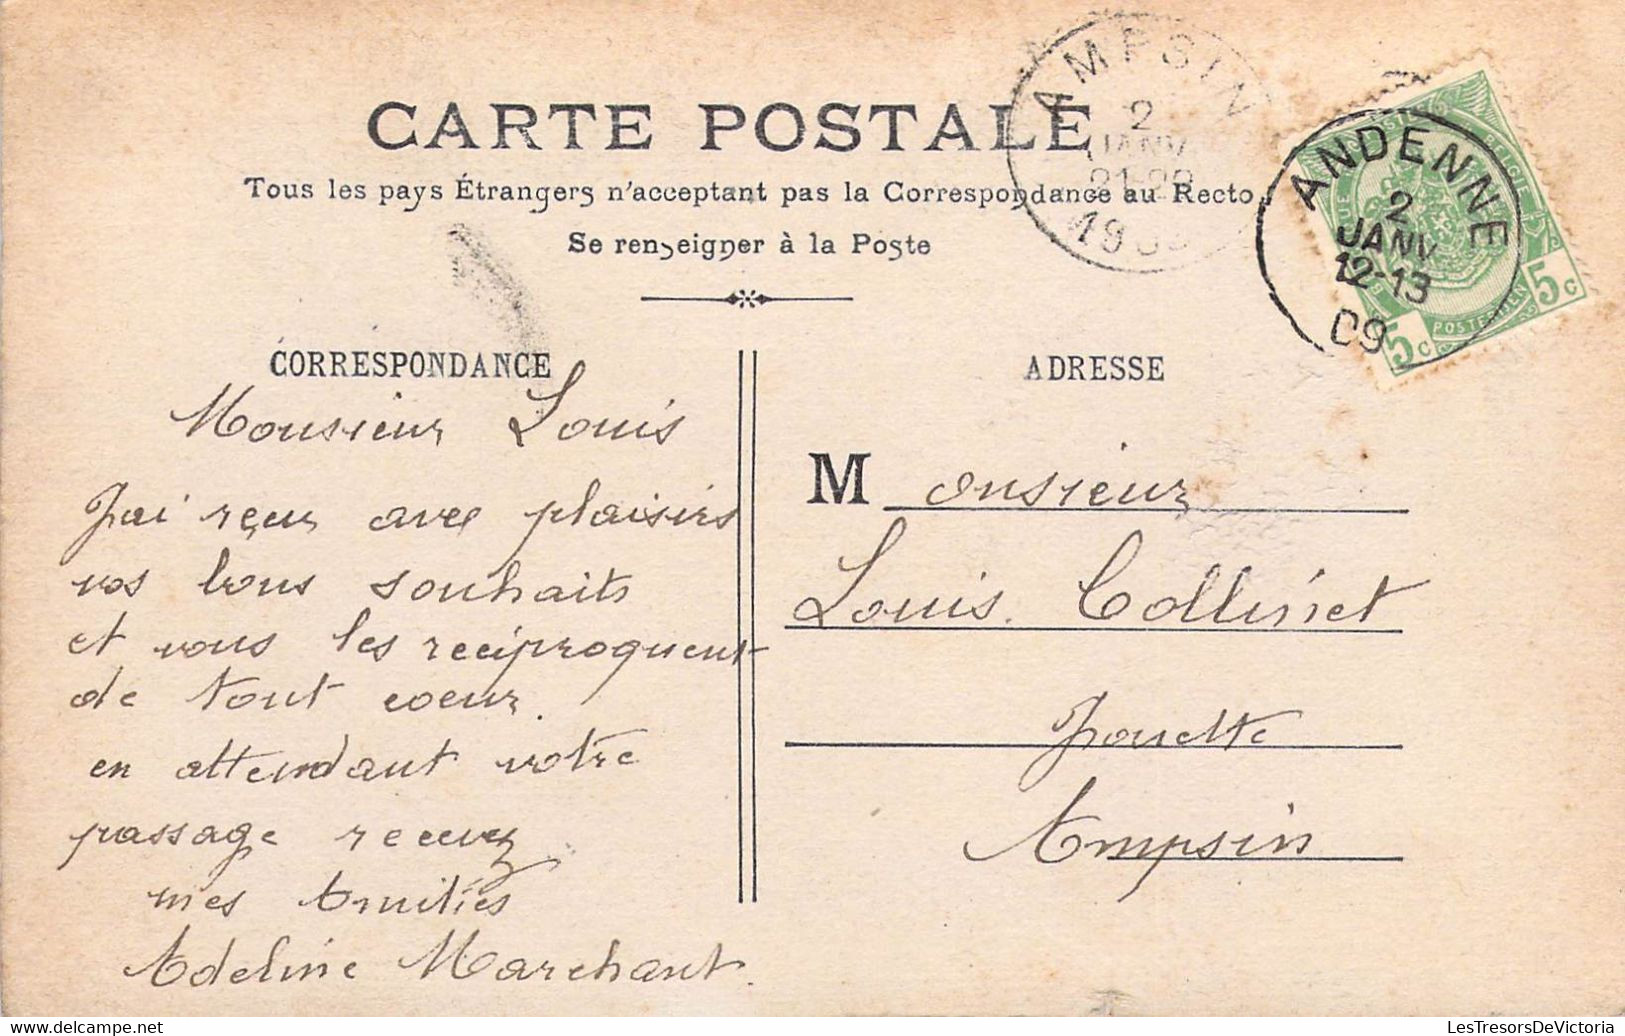 CARTE POSTALE
Tous les pays Étrangers n'acceptant pas la Correspondance au Recto
Se renseigner à la Poste
AMPSIN
2
JANV
1909
ANDENNE
2
JANV
12-13
09
BELGIE
POSTERIJEN
5c
5c
CORRESPONDANCE
Monsieur Louis
J'ai reçus avec plaisirs
vos bons souhaits
et vous les reciproquent
de tout coeur.
en attendant votre
passage recevez
mes Amitiés
Adeline Marchant.
ADRESSE
Monsieur
Louis. Collinet
Ampsin
LesTresorsDeVictoria